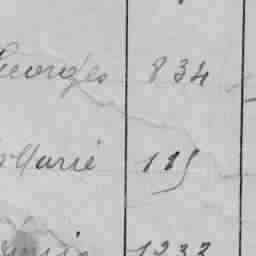 Georges 834
Marie 115
1233